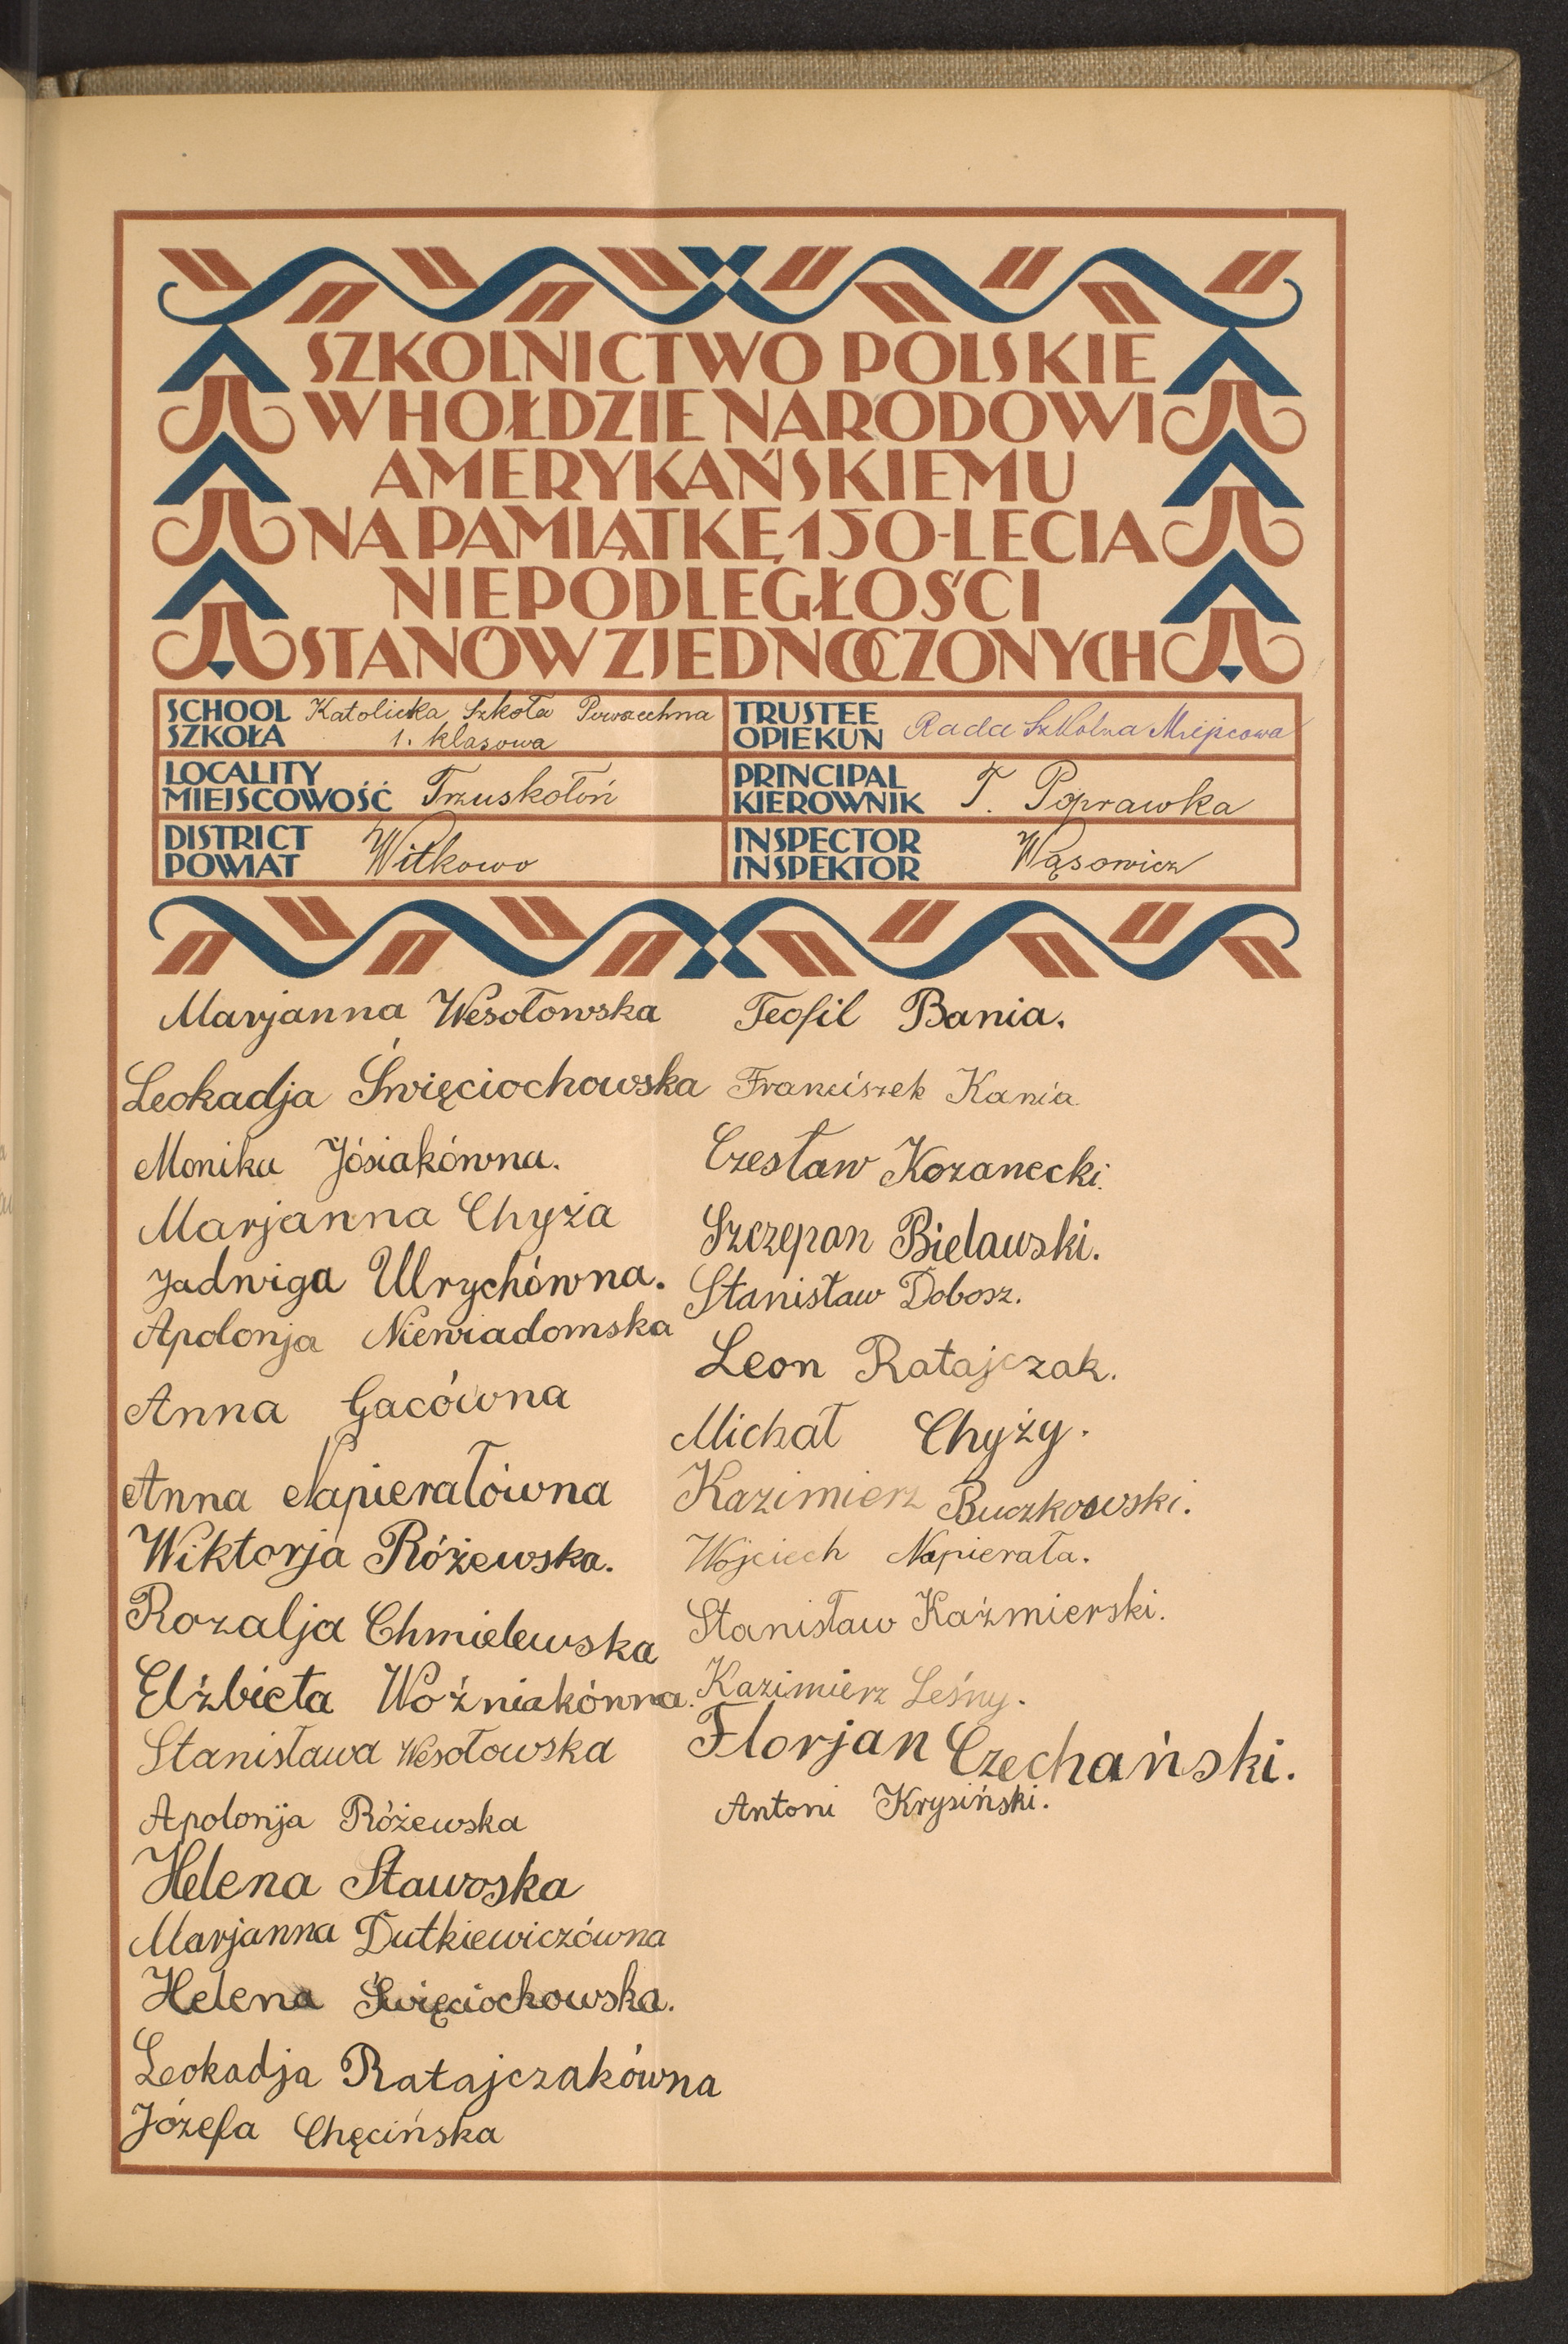 SZKOLNICTWO POLSKIE
W HOŁDZIE NARODOWI
AMERYKAŃSKIEMU
NA PAMIĄTKĘ 150-LECIA
NIEPODLEGŁOŚCI
STANÓW ZJEDNOCZONYCH
SCHOOL SZKOŁA Katolicka Szkoła Powszechna
1. klasowa
TRUSTEE OPIEKUN Rada Szkolna Miejscowa
LOCALITY MIEJSCOWOŚĆ Trzuskołoń
PRINCIPAL KIEROWNIK T. Poprawka
DISTRICT POWIAT Witkowo
INSPECTOR INSPEKTOR Wąsowicz
Marjanna Wesołowska
Leokadja Święciochowska
Monika Jósiakówna.
Marjanna Chyża
Jadwiga Ulrychówna.
Apolonja Niewiadomska
Anna Gacówna
Anna Napierałówna
Wiktorja Różewska.
Rozalja Chmielewska
Elżbieta Woźniakówna.
Stanisława Wesołowska
Apolonja Różewska
Helena Stawoska
Marjanna Dutkiewiczówna
Helena Święciochowska.
Leokadja Ratajczakówna
Józefa Chęcińska
Teofil Bania.
Franciszek Kania
Czesław Kozanecki.
Szczepan Bielawski.
Stanisław Dobosz.
Leon Ratajczak.
Michał Chyży.
Kazimierz Buczkowski.
Wojciech Napierała.
Stanisław Kaźmierski.
Kazimierz Leśny.
Florjan Czechański.
Antoni Krysiński.